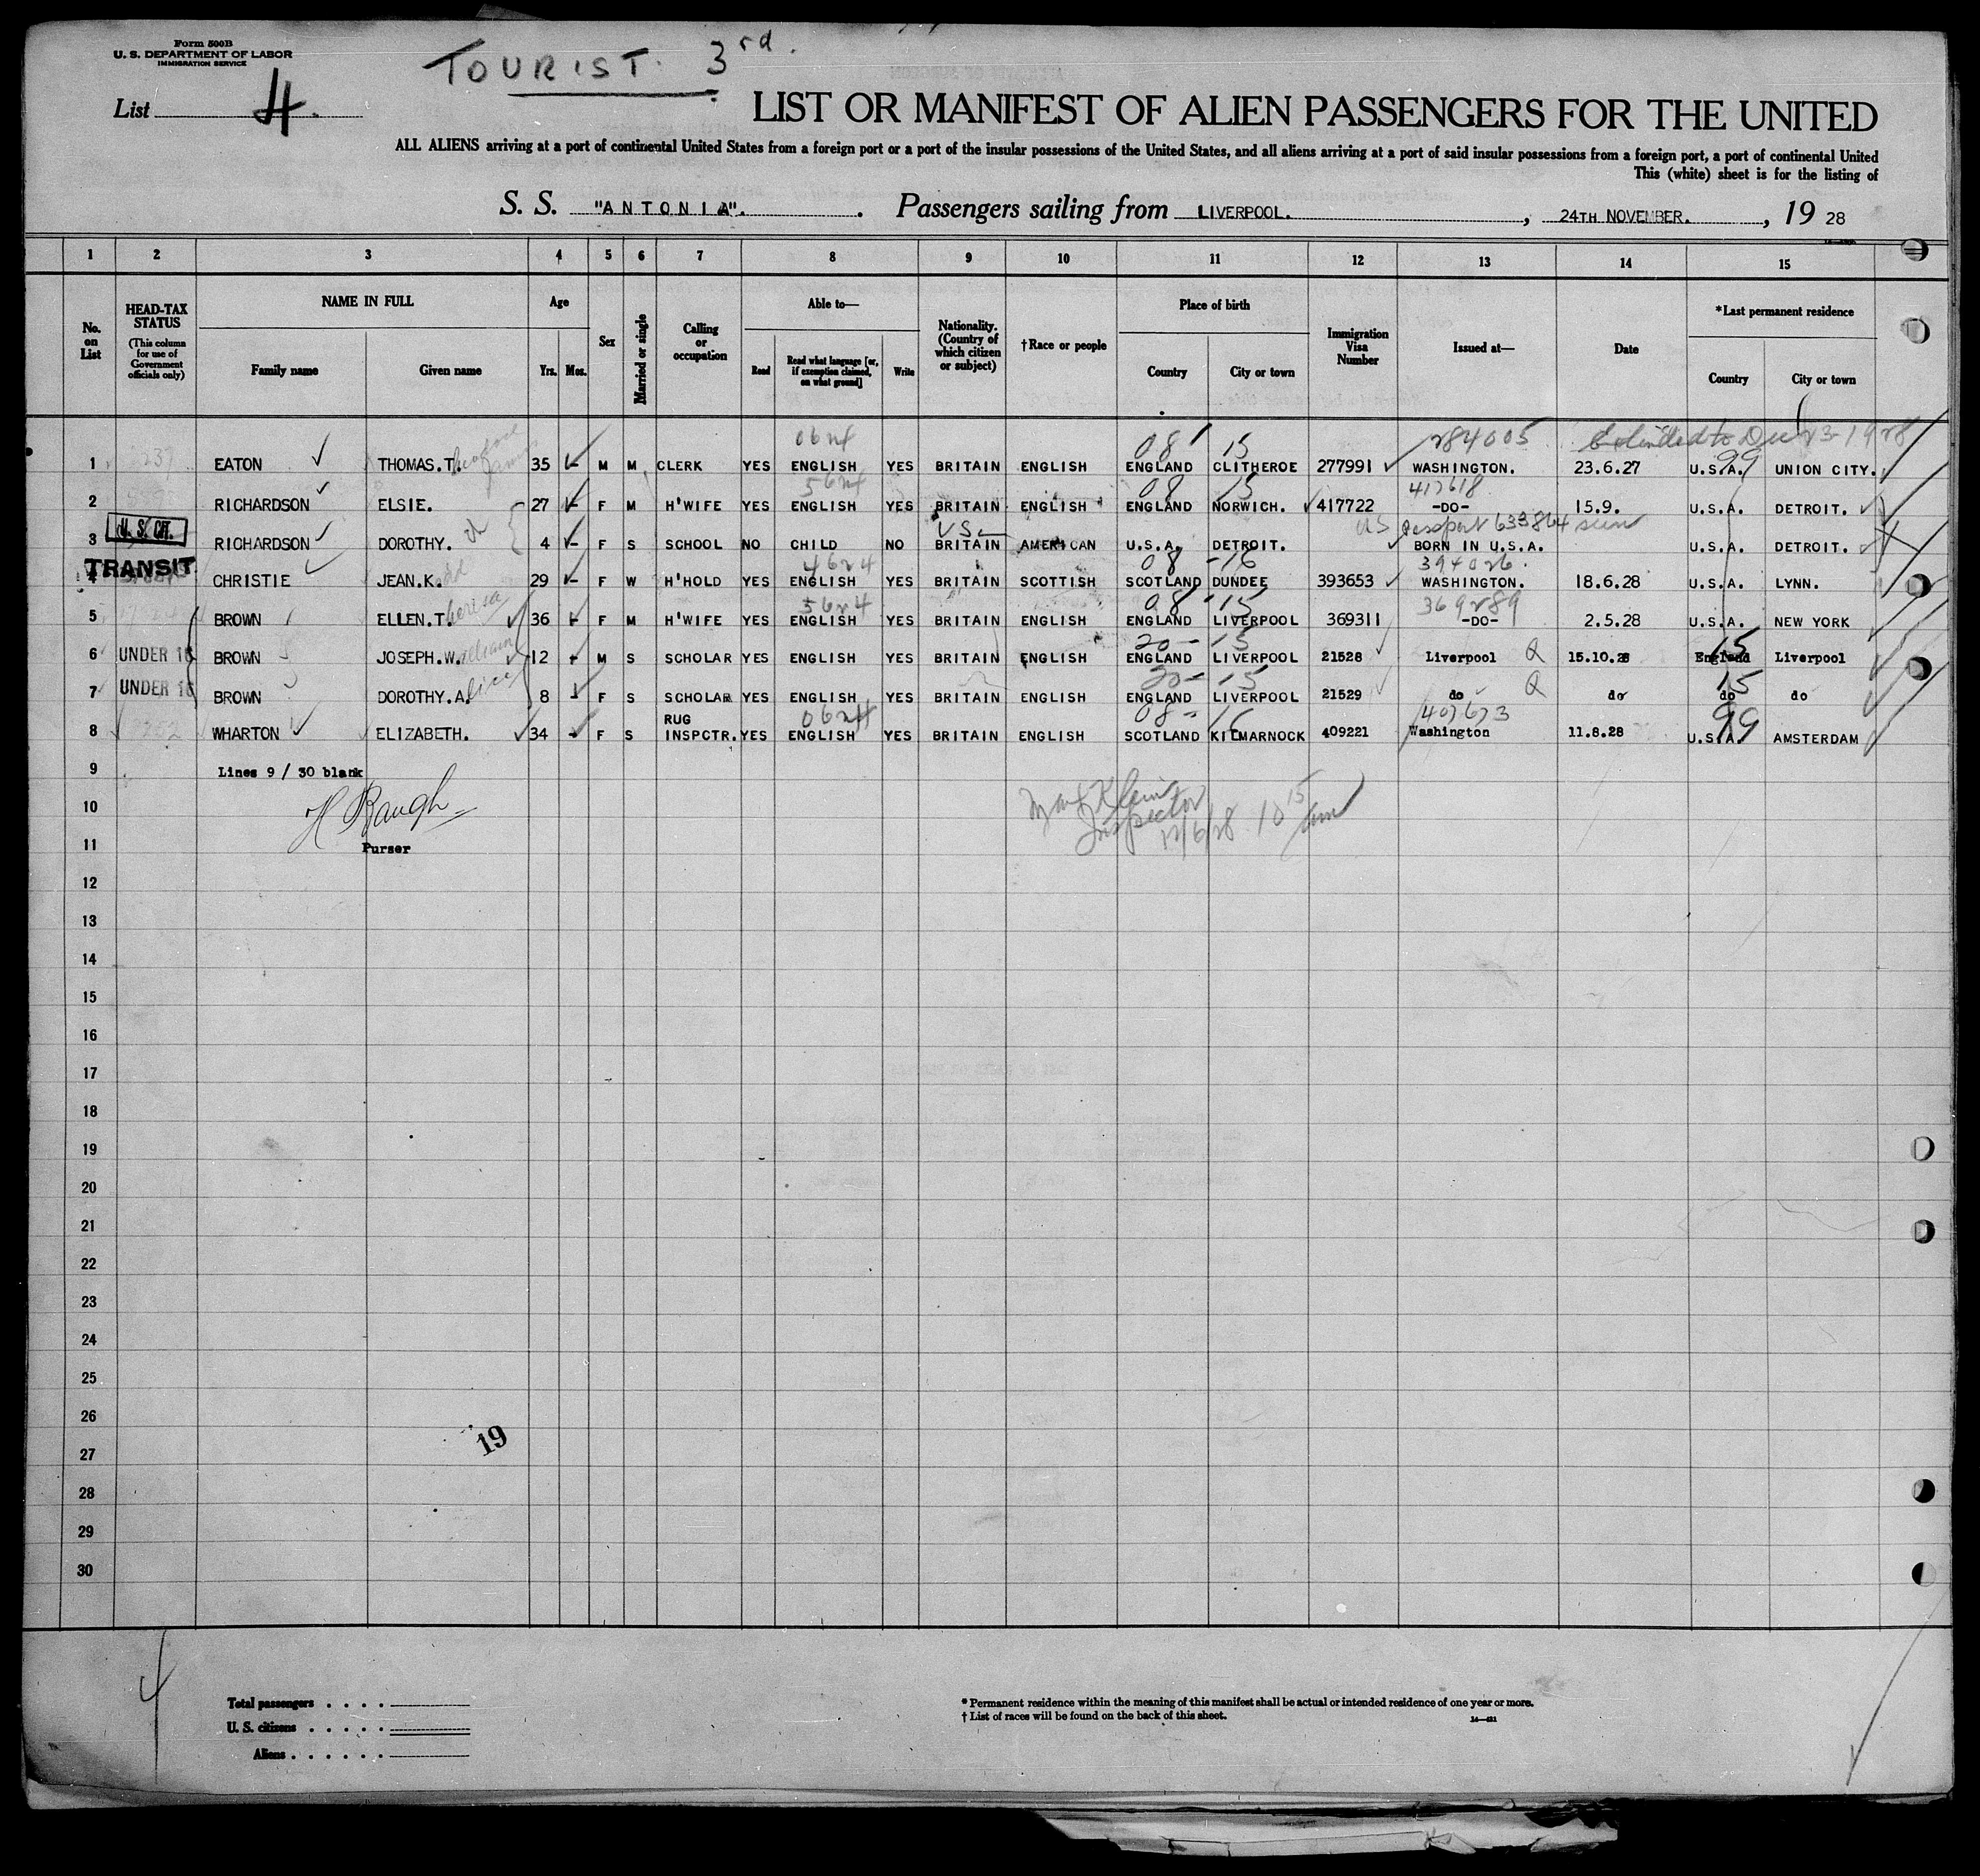 Form 500B
U. S. DEPARTMENT OF LABOR
IMMIGRATION SERVICE
TOURIST. 3rd.
List 4.
LIST OR MANIFEST OF ALIEN PASSENGERS FOR THE UNITED
ALL ALIENS arriving at a port of continental United States from a foreign port or a port of the insular possessions of the United States, and all aliens arriving at a port of said insular possessions from a foreign port, a port of continental United
This (white) sheet is for the listing of
S. S. "ANTONIA". Passengers sailing from LIVERPOOL. , 24TH NOVEMBER. , 19 28
1 2 3 4 5 6 7 8 9 10 11 12 13 14 15
No. on List
HEAD-TAX STATUS (This column for use of Government officials only)
NAME IN FULL
Family name Given name
Age
Yrs. Mos.
Sex
Married or single
Calling or occupation
Able to—
Read Read what language [or, if exemption claimed, on what ground] Write
Nationality. (Country of which citizen or subject)
†Race or people
Place of birth
Country City or town
Immigration Visa Number
Issued at—
Date
*Last permanent residence
Country City or town
08 15 284005 Extended to Dec 23-1928
1 EATON THOMAS.T. James 35 - M M CLERK YES ENGLISH YES BRITAIN ENGLISH ENGLAND CLITHEROE 277991 WASHINGTON. 23.6.27 U.S.A. 99 UNION CITY.
08 15 417618
2 RICHARDSON ELSIE. 27 - F M H'WIFE YES ENGLISH YES BRITAIN ENGLISH ENGLAND NORWICH. 417722 -DO- 15.9. U.S.A. DETROIT.
U. S. CIT. US US passport 633864 seen
3 RICHARDSON DOROTHY. 4 - F S SCHOOL NO CHILD NO BRITAIN AMERICAN U.S.A. DETROIT. BORN IN U.S.A. U.S.A. DETROIT.
TRANSIT 08 - 16 394026.
4 CHRISTIE JEAN.K. 29 - F W H'HOLD YES ENGLISH YES BRITAIN SCOTTISH SCOTLAND DUNDEE 393653 WASHINGTON. 18.6.28 U.S.A. LYNN.
08 - 15 369289
5 BROWN ELLEN.T. Theresa 36 - F M H'WIFE YES ENGLISH YES BRITAIN ENGLISH ENGLAND LIVERPOOL 369311 -DO- 2.5.28 U.S.A. NEW YORK
20 - 15 15
6 UNDER 16 BROWN JOSEPH.W. William 12 - M S SCHOLAR YES ENGLISH YES BRITAIN ENGLISH ENGLAND LIVERPOOL 21528 Liverpool Q 15.10.28 England Liverpool
20 - 15 15
7 UNDER 16 BROWN DOROTHY.A. Alice 8 - F S SCHOLAR YES ENGLISH YES BRITAIN ENGLISH ENGLAND LIVERPOOL 21529 do Q do do do
RUG 08 - 16 407673
8 WHARTON ELIZABETH. 34 - F S INSPCTR. YES ENGLISH YES BRITAIN ENGLISH SCOTLAND KILMARNOCK 409221 Washington 11.8.28 U.S.A. 99 AMSTERDAM
9 Lines 9 / 30 blank
10 H Baugh Max Klein
Inspector
12/6/28 10 15 am
11 Purser
12
13
14
15
16
17
18
19
20
21
22
23
24
25
26
19
27
28
29
30
4
Total passengers . . . .
U. S. citizens . . . . .
Aliens . . . . . .
* Permanent residence within the meaning of this manifest shall be actual or intended residence of one year or more.
† List of races will be found on the back of this sheet.